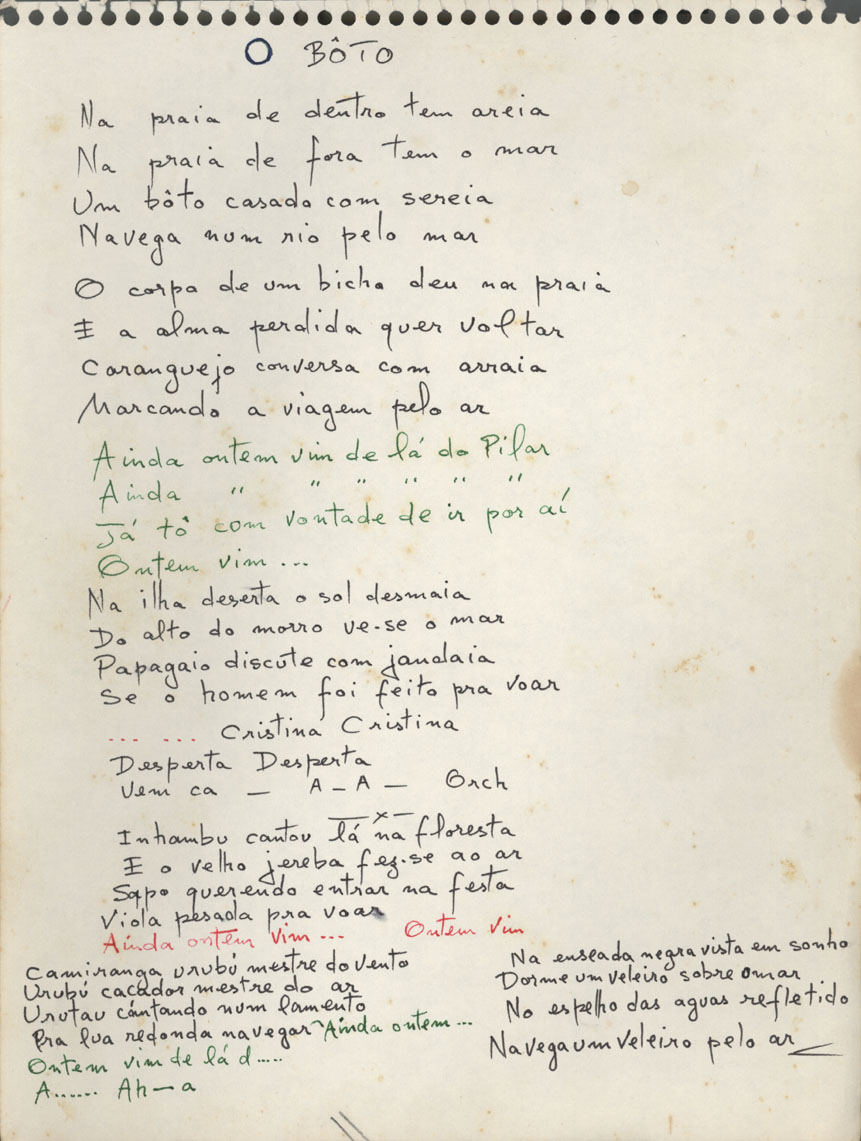 O BÔTO
Na praia de dentro tem areia
Na praia de fora tem o mar
Um bôto casado com sereia
Navega num rio pelo mar
O corpo de um bicho deu na praia
E a alma perdida quer voltar
Caranguejo conversa com arraia
Marcando a viagem pelo ar
Ainda ontem vim de lá do Pilar
Ainda " " " " " "
Já tô com vontade de ir por aí
Ontem vim ...
Na ilha deserta o sol desmaia
Do alto do morro ve-se o mar
Papagaio discute com jandaia
Se o homem foi feito pra voar
... ... Cristina Cristina
Desperta Desperta
Vem ca — A - A — Orch
— x —
Inhambu cantou lá na floresta
E o velho jereba fez-se ao ar
Sapo querendo entrar na festa
Viola pesada pra voar
Ainda ontem vim ... Ontem vim
Camiranga urubú mestre do vento
Urubú caçador mestre do ar
Urutau cántando num lamento
Pra lua redonda navegar Ainda ontem ...
Ontem vim de lá d.....
A...... Ah — a
Na enseada negra vista em sonho
Dorme um veleiro sobre o mar
No espelho das aguas refletido
Navega um veleiro pelo ar